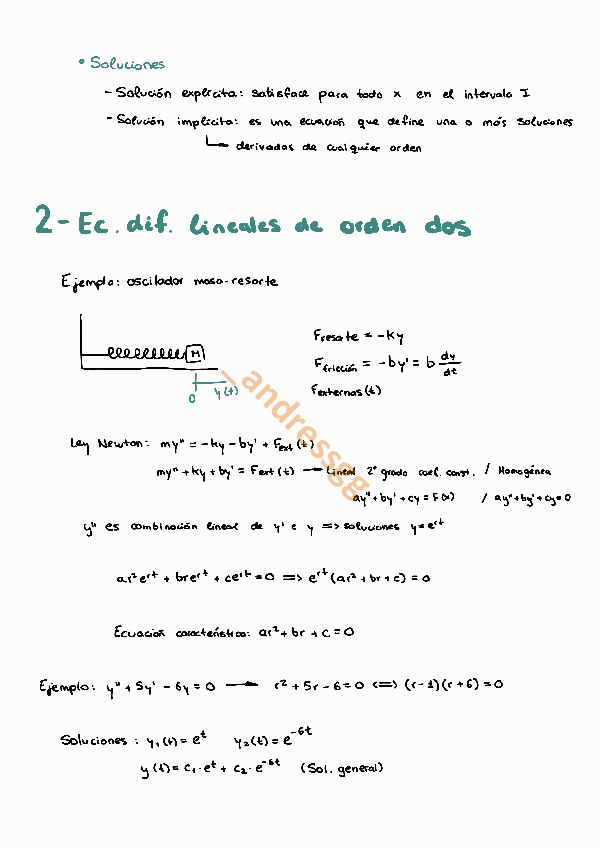 • Soluciones
- Solución explícita: satisface para todo x en el intervalo I
- Solución implícita: es una ecuación que define una o más soluciones
derivadas de cualquier orden
2- Ec. dif. lineales de orden dos
Ejemplo: oscilador masa-resorte
M
0 y(t)
Fresorte = -ky
Ffricción = -by' = b dy/dt
Fexternas(t)
_andressgg_
Ley Newton: my" = -ky - by' + Fext(t)
my" + ky + by' = Fext(t) → Lineal 2º grado coef. const. / Homogénea
ay" + by' + cy = F(x) / ay" + by' + cy = 0
y" es combinación lineal de y' e y => soluciones y = e^rt
ar²e^rt + bre^rt + ce^rt = 0 => e^rt(ar² + br + c) = 0
Ecuación característica: ar² + br + c = 0
Ejemplo: y" + 5y' - 6y = 0 → r² + 5r - 6 = 0 <=> (r-1)(r+6) = 0
Soluciones: y₁(t) = e^t y₂(t) = e^-6t
y(t) = c₁·e^t + c₂·e^-6t (Sol. general)